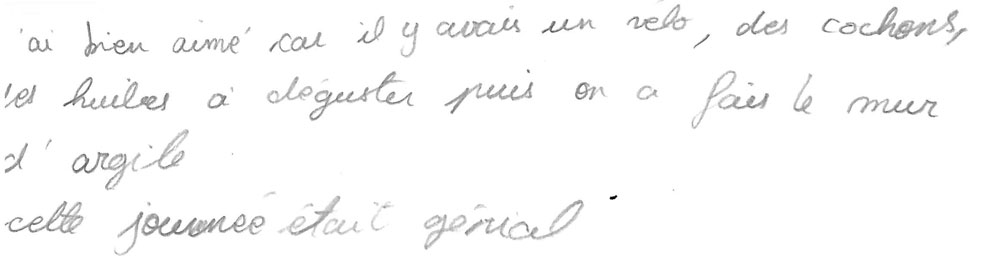 'ai bien aimé car il y avais un vélo, des cochons,
des huiles à déguster puis on a fais le mur
d'argile
cette journeé était génial